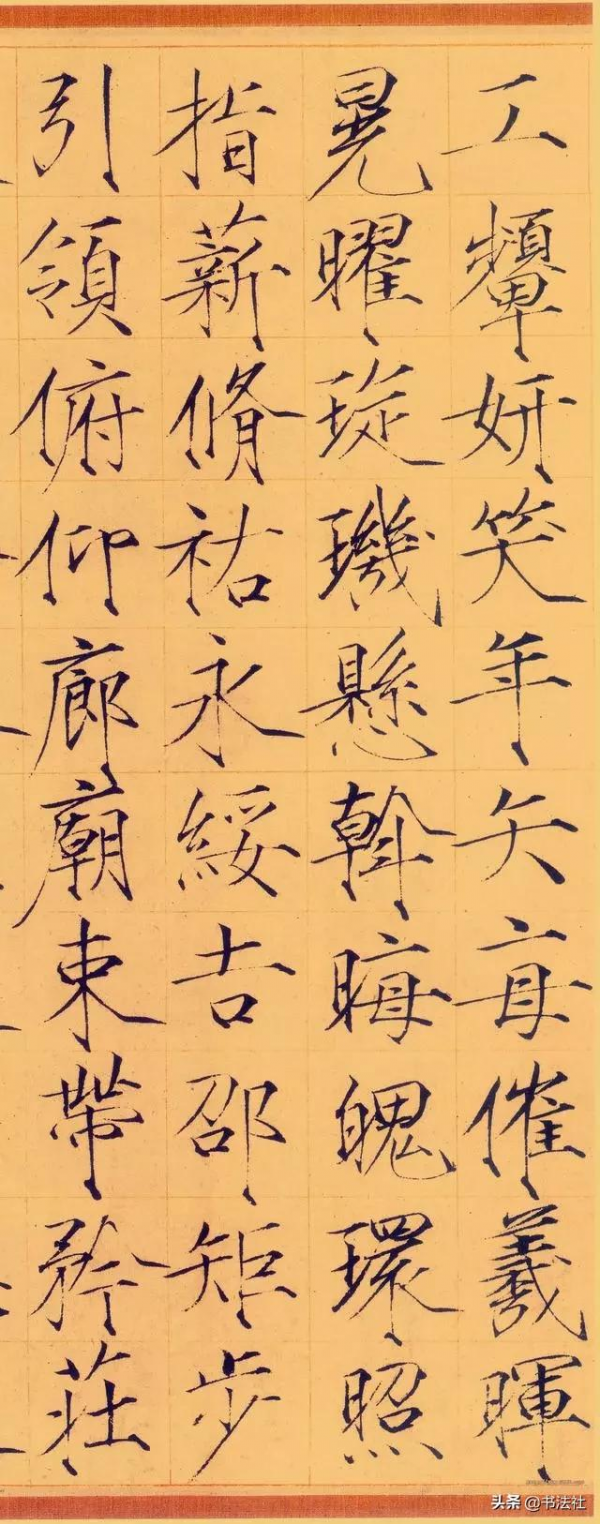 工顰妍笑年矢每催羲暉
晃曜琁璣懸斡晦魄環照
指薪脩祐永綏吉邵矩步
引領俯仰廊廟束帶矜莊
头条 @书法社